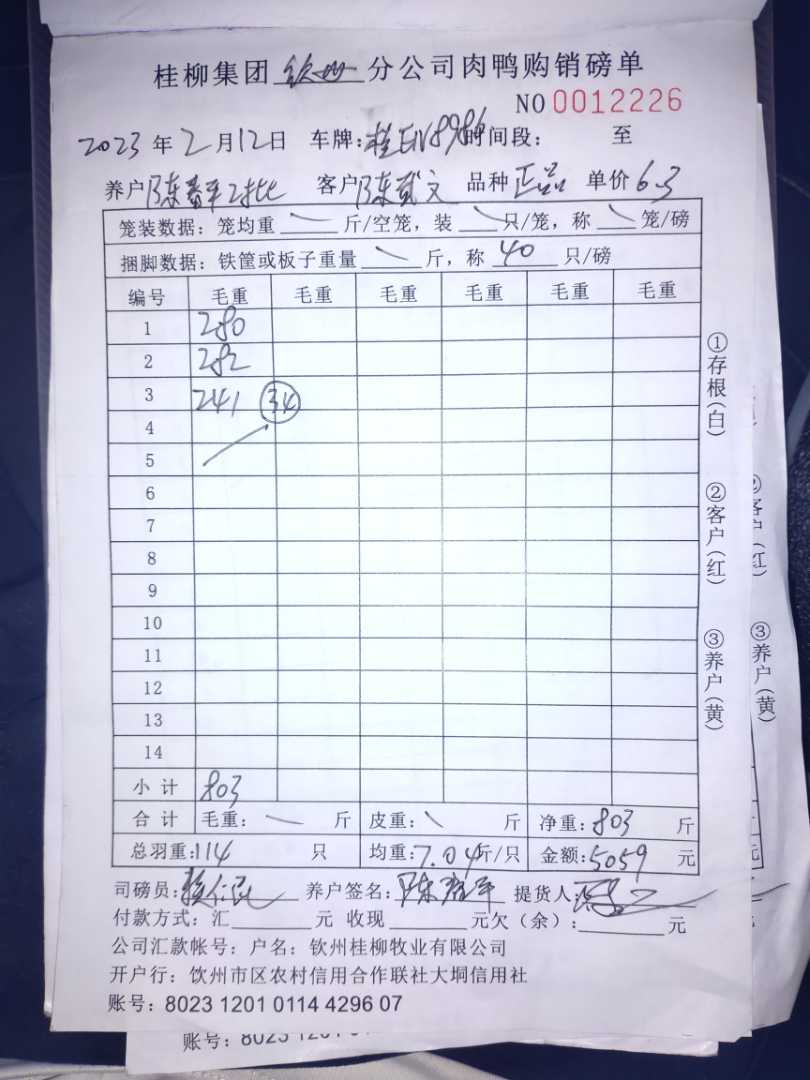 桂柳集团 钦州 分公司肉鸭购销磅单
NO 0012226
2023 年 2 月 12 日 车牌：桂EN8986 时间段： 至
养户 陈春平 客户 陈武文 品种 正品 单价 6.3
笼装数据：笼均重 斤/空笼，装 只/笼，称 笼/磅
捆脚数据：铁筐或板子重量 斤，称 40 只/磅
编号 毛重 毛重 毛重 毛重 毛重 毛重
1 280
2 282
3 241 34
4
5
6
7
8
9
10
11
12
13
14
小计 803
合计 毛重： 斤 皮重： 斤 净重：803 斤
总羽重：114 只 均重：7.04 斤/只 金额：5059 元
司磅员： 养户签名： 提货人：
付款方式：汇 元 收现 元欠（余）： 元
公司汇款帐号：户名：钦州桂柳牧业有限公司
开户行：饮州市区农村信用合作联社大垌信用社
账号：8023 1201 0114 4296 07
①存根（白）
②客户（红）
③养户（黄）
③养户（黄）